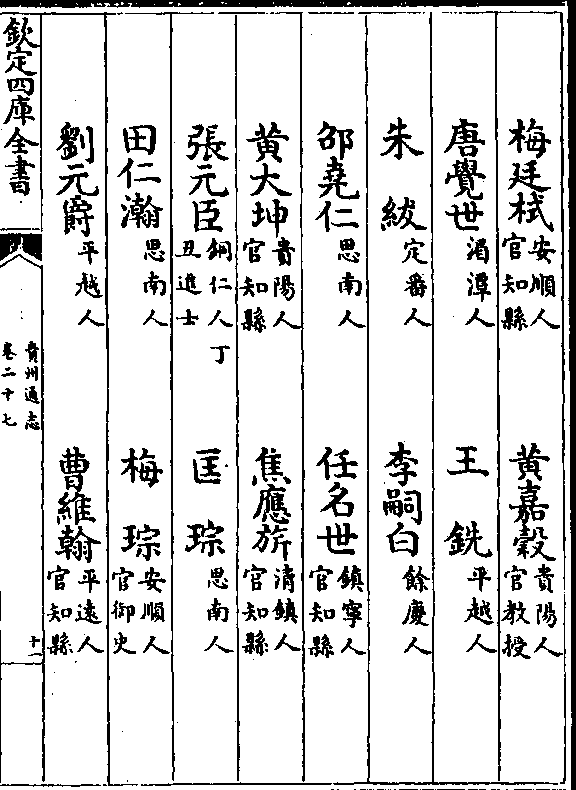 梅廷栻安順人官知縣　黃嘉穀貴陽人官教授
唐覺世湄潭人　王銑平越人
朱紱定番人　李嗣白餘慶人
邵堯仁思南人　任名世鎮寧人官知縣
黃大坤貴陽人官知縣　焦應旂清鎮人官知縣
張元臣銅仁人丁丑進士　匡琮思南人
田仁瀚思南人　梅琮安順人官御史
劉元爵平越人　曹維翰平遠人官知縣
欽定四庫全書　貴州通志卷二十七　十一